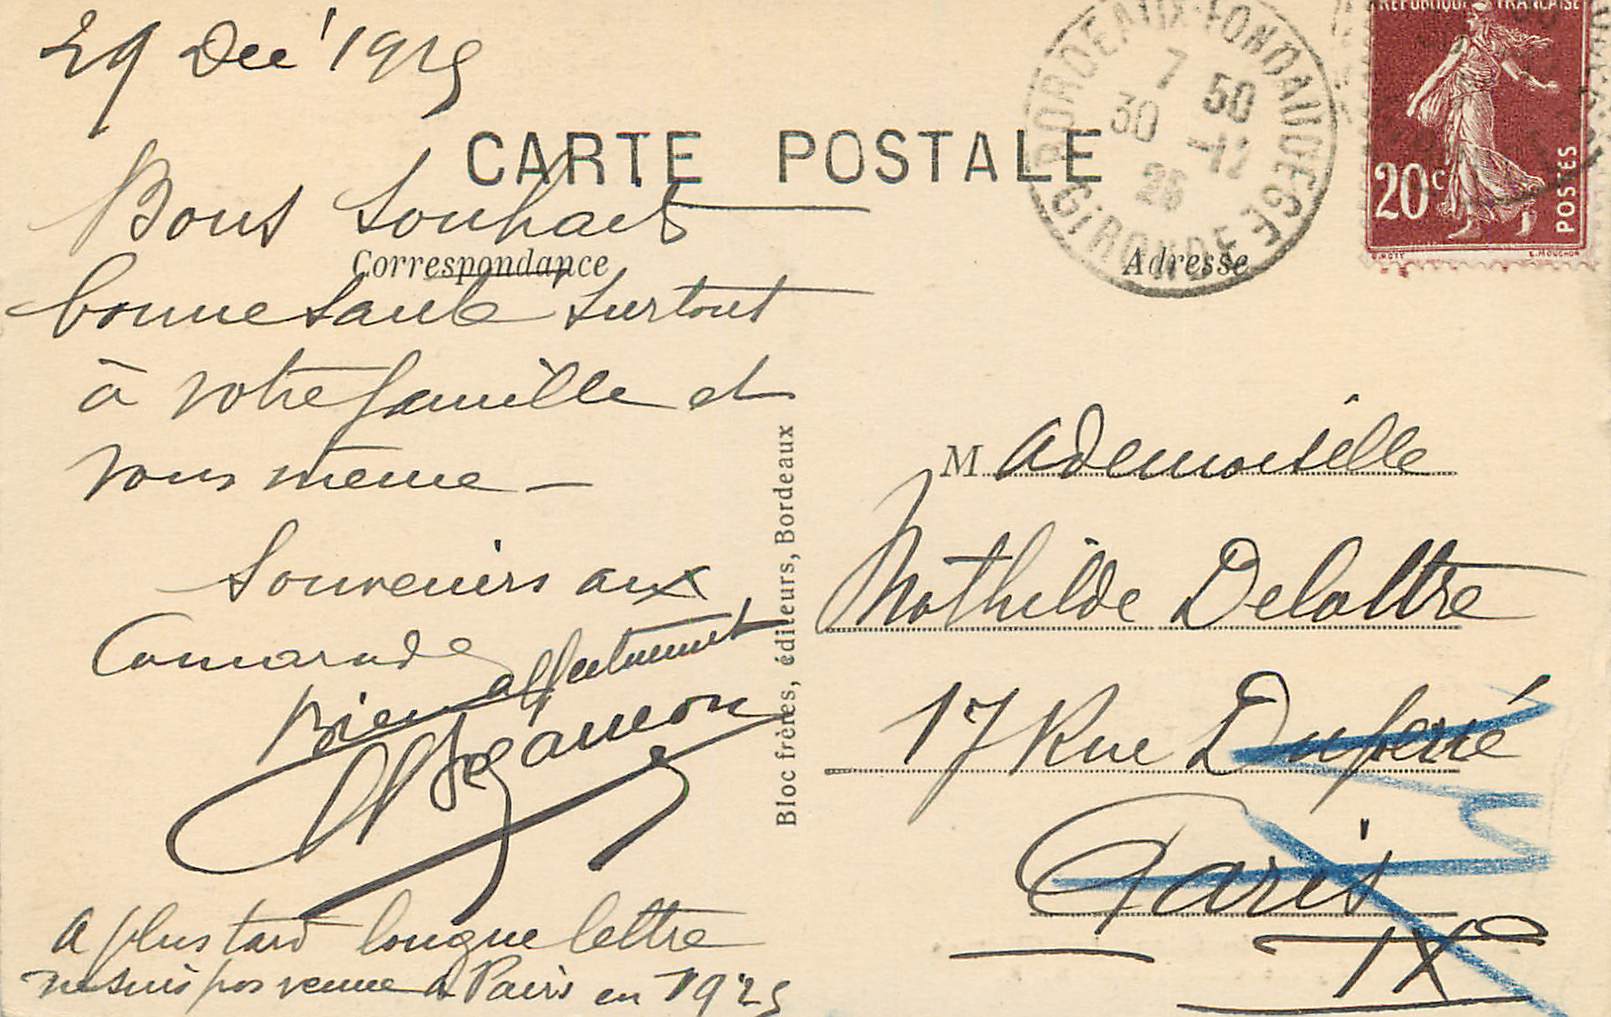 29 Dec' 1925
CARTE POSTALE
Bons souhaits
Correspondance
bonne santé surtout
à votre famille et
vous meme —
Souvenirs aux
Camarades
Bien affectueusement
a plus tard longue lettre
ne suis pas venue à Paris en 1925
Bloc frères, éditeurs, Bordeaux
BORDEAUX-FONDAUDEGE
7 50
30 -12
25
GIRONDE
REPUBLIQUE FRANÇAISE
20c
POSTES
O. ROTY
E. MOUCHON
Adresse
Mademoiselle
Mathilde Delattre
17 Rue Duperré
Paris
IXe